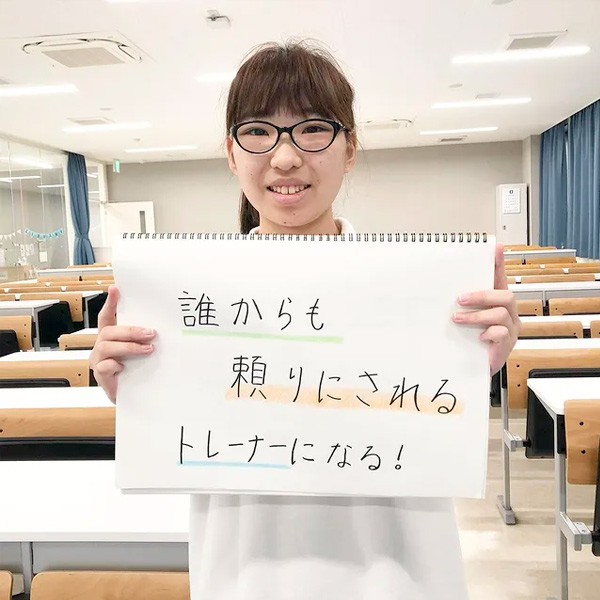 誰からも
頼りにされる
トレーナーになる!